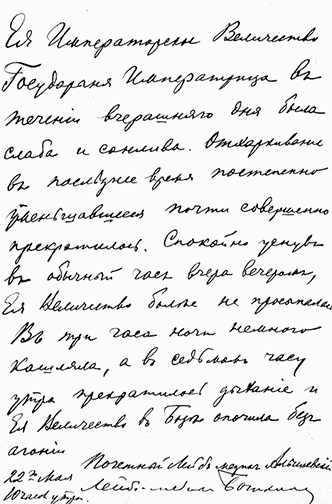 Ея Императорское Величество
Государыня Императрица въ
теченіи вчерашняго дня была
слаба и сонлива. Отхаркиваніе
въ послѣднее время постепенно
уменьшавшееся почти совершенно
прекратилось. Спокойно уснувъ
въ обычный часъ вчера вечеромъ,
Ея Величество болѣе не просыпалась
Въ три часа ночи немного
кашляла, а въ седьмомъ часу
утра прекратилось дыханіе и
Ея Величество въ Бозѣ опочила безъ
агоніи
Почетный Лейбъ-медикъ
22го Мая Лейбъ-медикъ Боткинъ
10 часовъ утра